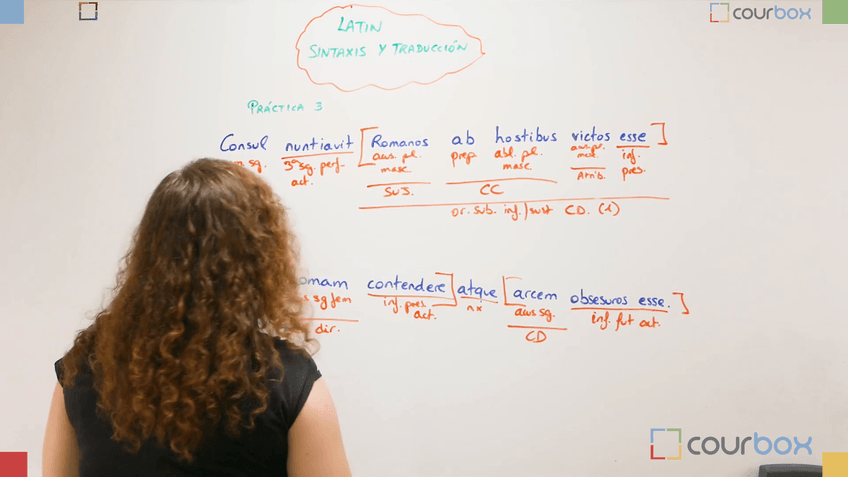 courbox
LATIN
SINTAXIS Y TRADUCCIÓN
PRÁCTICA 3
Consul nuntiavit [Romanos ab hostibus victos esse]
sg. 3ª sg. perf. act. acus. pl. masc. prep. abl. pl. masc. acus. pl. masc. inf. pres.
SUJ. CC Atrib.
Or. sub. inf./sust CD. (1)
contendere] atque [arcem obsesuros esse.]
sg fem inf. pres. act. nx acus sg. inf. fut act.
dir. CD
courbox